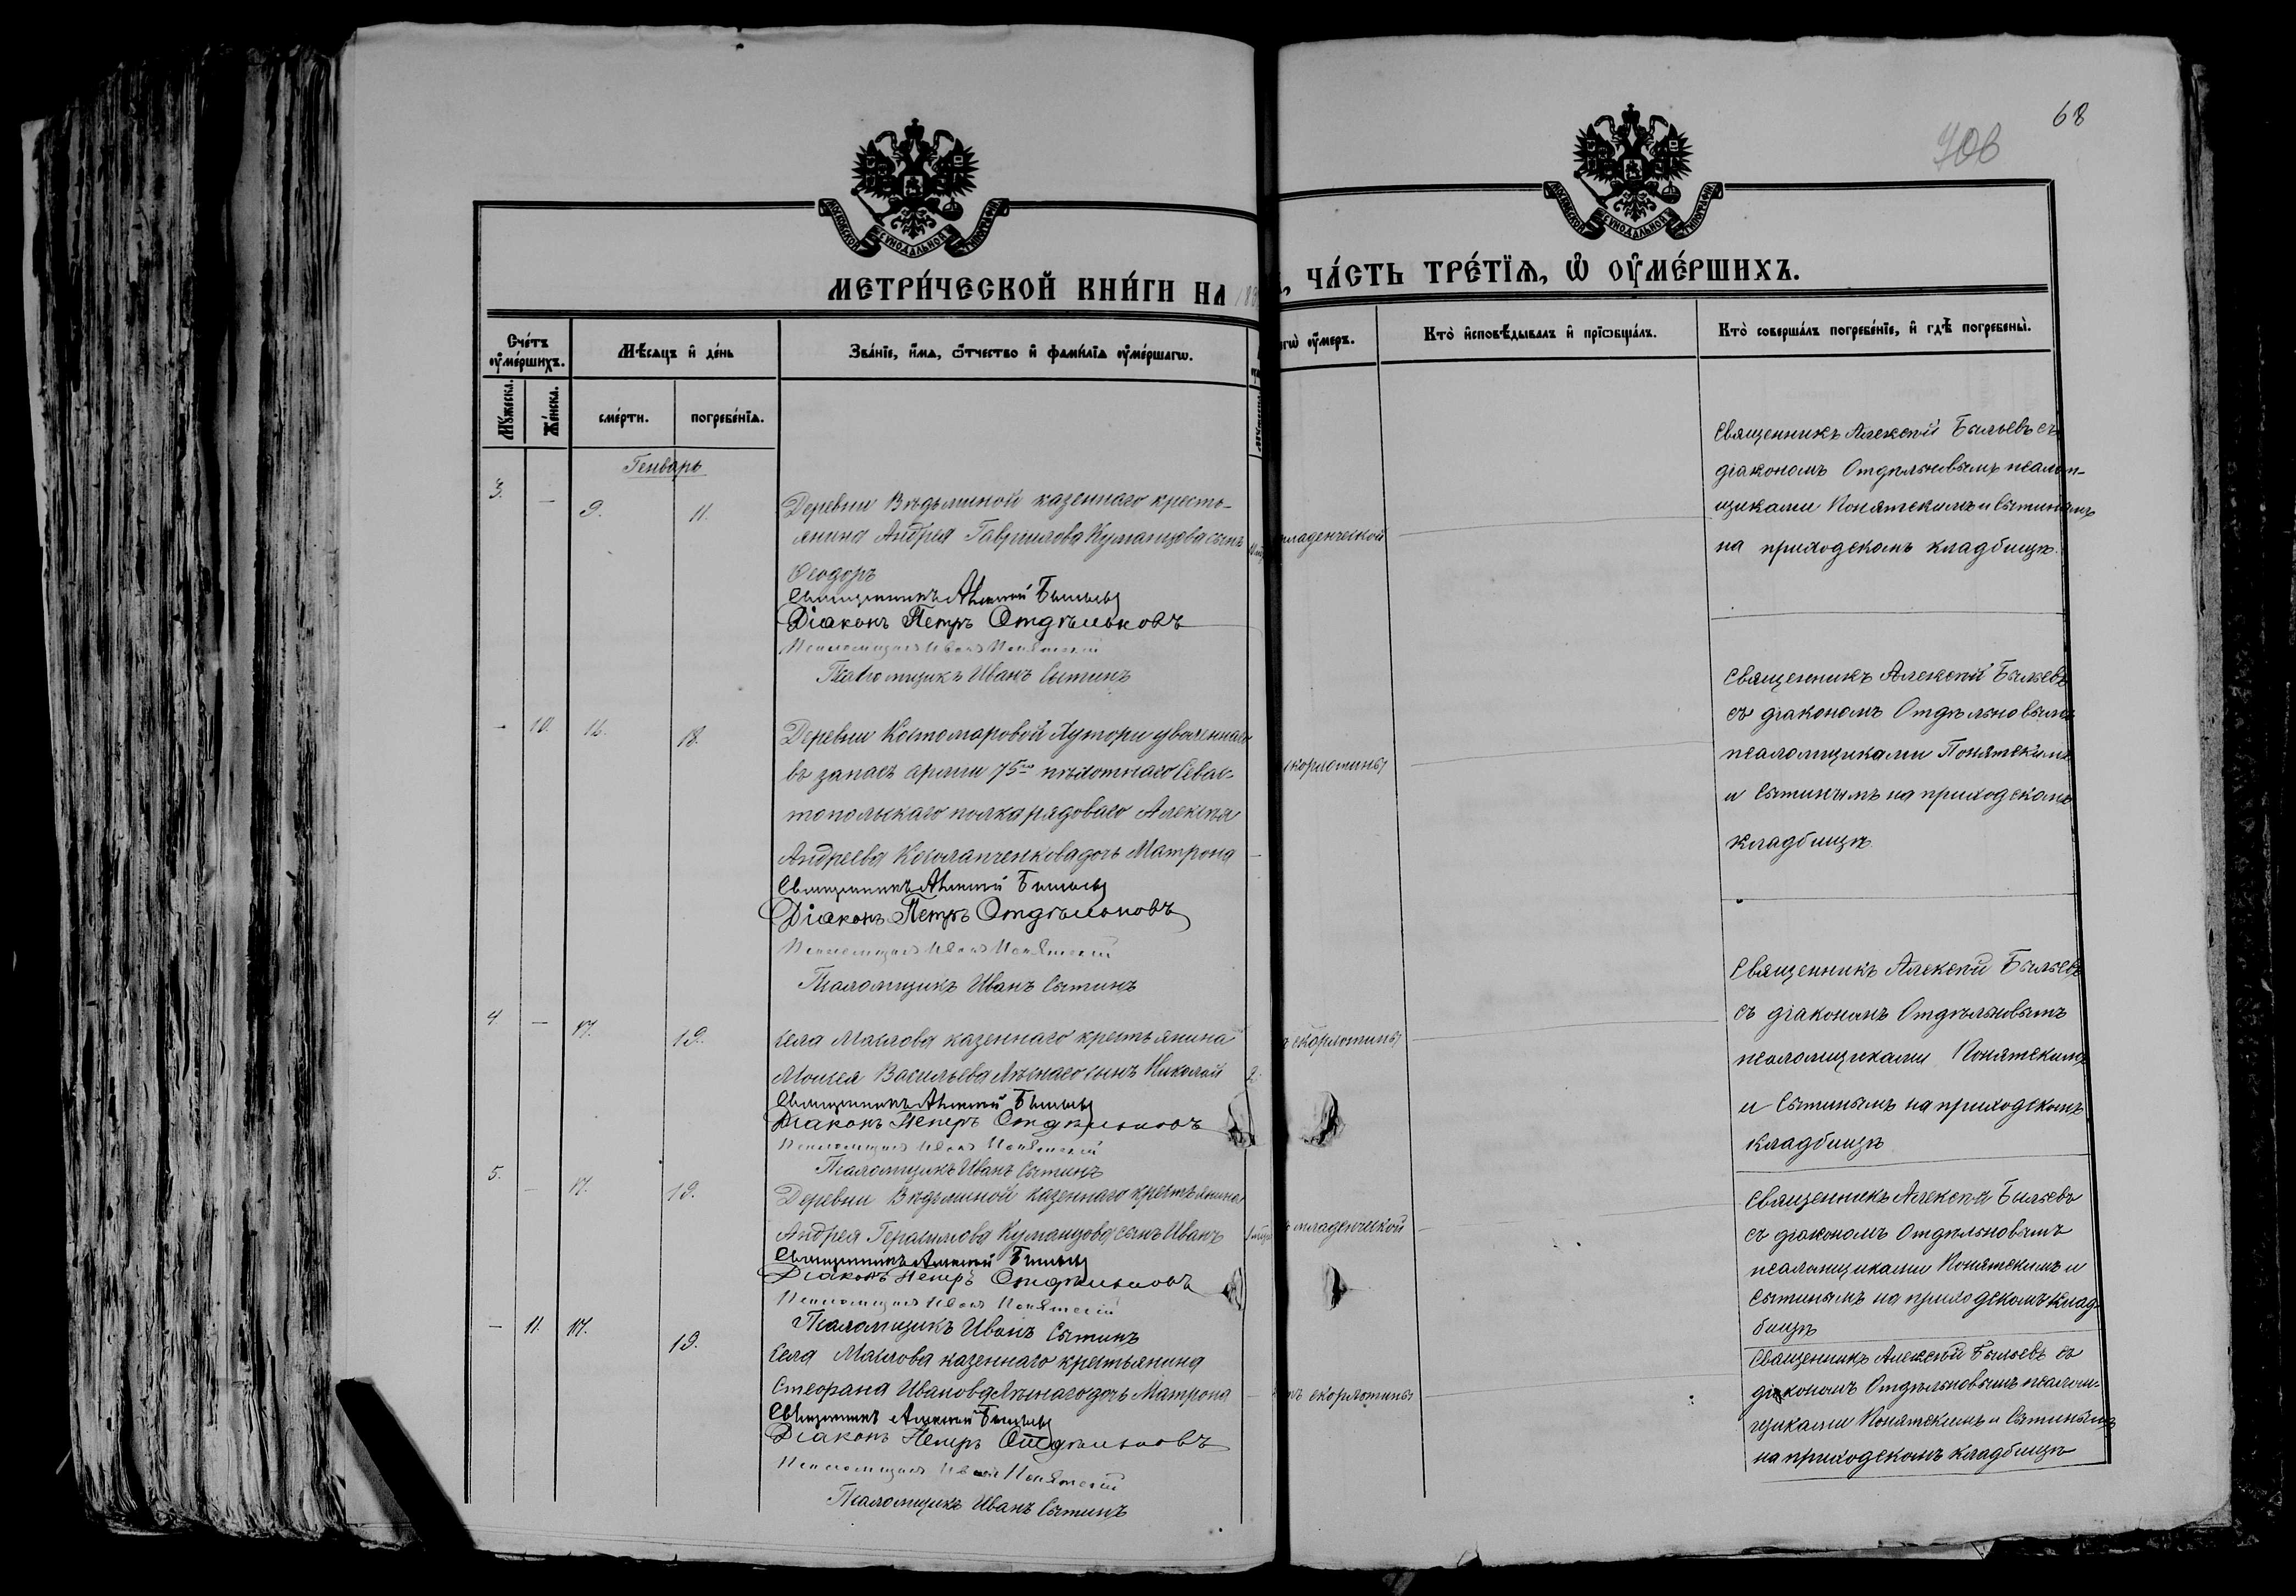 68
706
МОСКОВСКОЙ СѴНОДАЛЬНОЙ ТИПОГРАФІИ
МОСКОВСКОЙ СѴНОДАЛЬНОЙ ТИПОГРАФІИ
МЕТРИ́ЧЕСКОЙ КНИ́ГИ НА 18
ЧА́СТЬ ТРЕ́ТЇѦ, Ѡ҆ ОУ҆МЕ́РШИХЪ.
Сче́тъ оу҆ме́ршихъ.
Мѣ́сѧцъ и҆ де́нь
Зва́нїе, и҆́мѧ, ѻ҆́тчество и҆ фами́лїѧ оу҆ме́ршагѡ.
оу҆́меръ.
Кто̀ и҆сповѣ́дывалъ и҆ прїѡбща́лъ.
Кто̀ соверша́лъ погребе́нїе, и҆ гдѣ̀ погребены̀.
Мꙋ́жеска.
Же́нска.
сме́рти.
погребе́нїѧ.
Генварь
3. — 9. 11.
Деревни Вѣдьминой казеннаго кресть-
янина Андрея Гаврилова Куманцова сынъ
Ѳеодоръ
младенческой
Священникъ Алексѣй Быльевъ
Діаконъ Петръ Отдѣльновъ
Псаломщикъ Иванъ Понятскій
Псаломщикъ Иванъ Сытинъ
Священникъ Алексѣй Быльевъ съ
діакономъ Отдѣльновымъ псалом-
щиками Понятскимъ и Сытинымъ
на приходскомъ кладбищѣ.
— 10. 16. 18.
Деревни Костомаровой Хутори уволеннаго
въ запасъ арміи 75го пѣхотнаго Севас-
топольскаго полка рядоваго Алексѣя
Андреева Косолапченкова дочь Матрона
скорлотины
Священникъ Алексѣй Быльевъ
Діаконъ Петръ Отдѣльновъ
Псаломщикъ Иванъ Понятскій
Псаломщикъ Иванъ Сытинъ
Священникъ Алексѣй Быльевъ
съ діакономъ Отдѣльновымъ
псаломщиками Понятскимъ
и Сытинымъ на приходскомъ
кладбищѣ.
4 — 17. 19.
Села Маслова казеннаго крестьянина
Моисея Васильева Лѣснаго сынъ Николай
2
скорлотины
Священникъ Алексѣй Быльевъ
Діаконъ Петръ Отдѣльновъ
Псаломщикъ Иванъ Понятскій
Псаломщикъ Иванъ Сытинъ
Священникъ Алексѣй Быльевъ
съ діакономъ Отдѣльновымъ
псаломщиками Понятскимъ
и Сытинымъ на приходскомъ
кладбищѣ
5. — 17. 19.
Деревни Вѣдьминой казеннаго крестьянина
Андрея Герасимова Куманцова сынъ Иванъ
младенческой
Священникъ Алексѣй Быльевъ
Діаконъ Петръ Отдѣльновъ
Псаломщикъ Иванъ Понятскій
Псаломщикъ Иванъ Сытинъ
Священникъ Алексѣй Быльевъ
съ діакономъ Отдѣльновымъ
псаломщиками Понятскимъ и
Сытинымъ на приходскомъ клад-
бищѣ
— 11. 17. 19.
Села Маслова казеннаго крестьянина
Стефана Иванова Лѣснаго дочь Матрона
скорлотины
Священникъ Алексѣй Быльевъ
Діаконъ Петръ Отдѣльновъ
Псаломщикъ Иванъ Понятскій
Псаломщикъ Иванъ Сытинъ
Священникъ Алексѣй Быльевъ съ
діакономъ Отдѣльновымъ псалом-
щиками Понятскимъ и Сытинымъ
на приходскомъ кладбищѣ